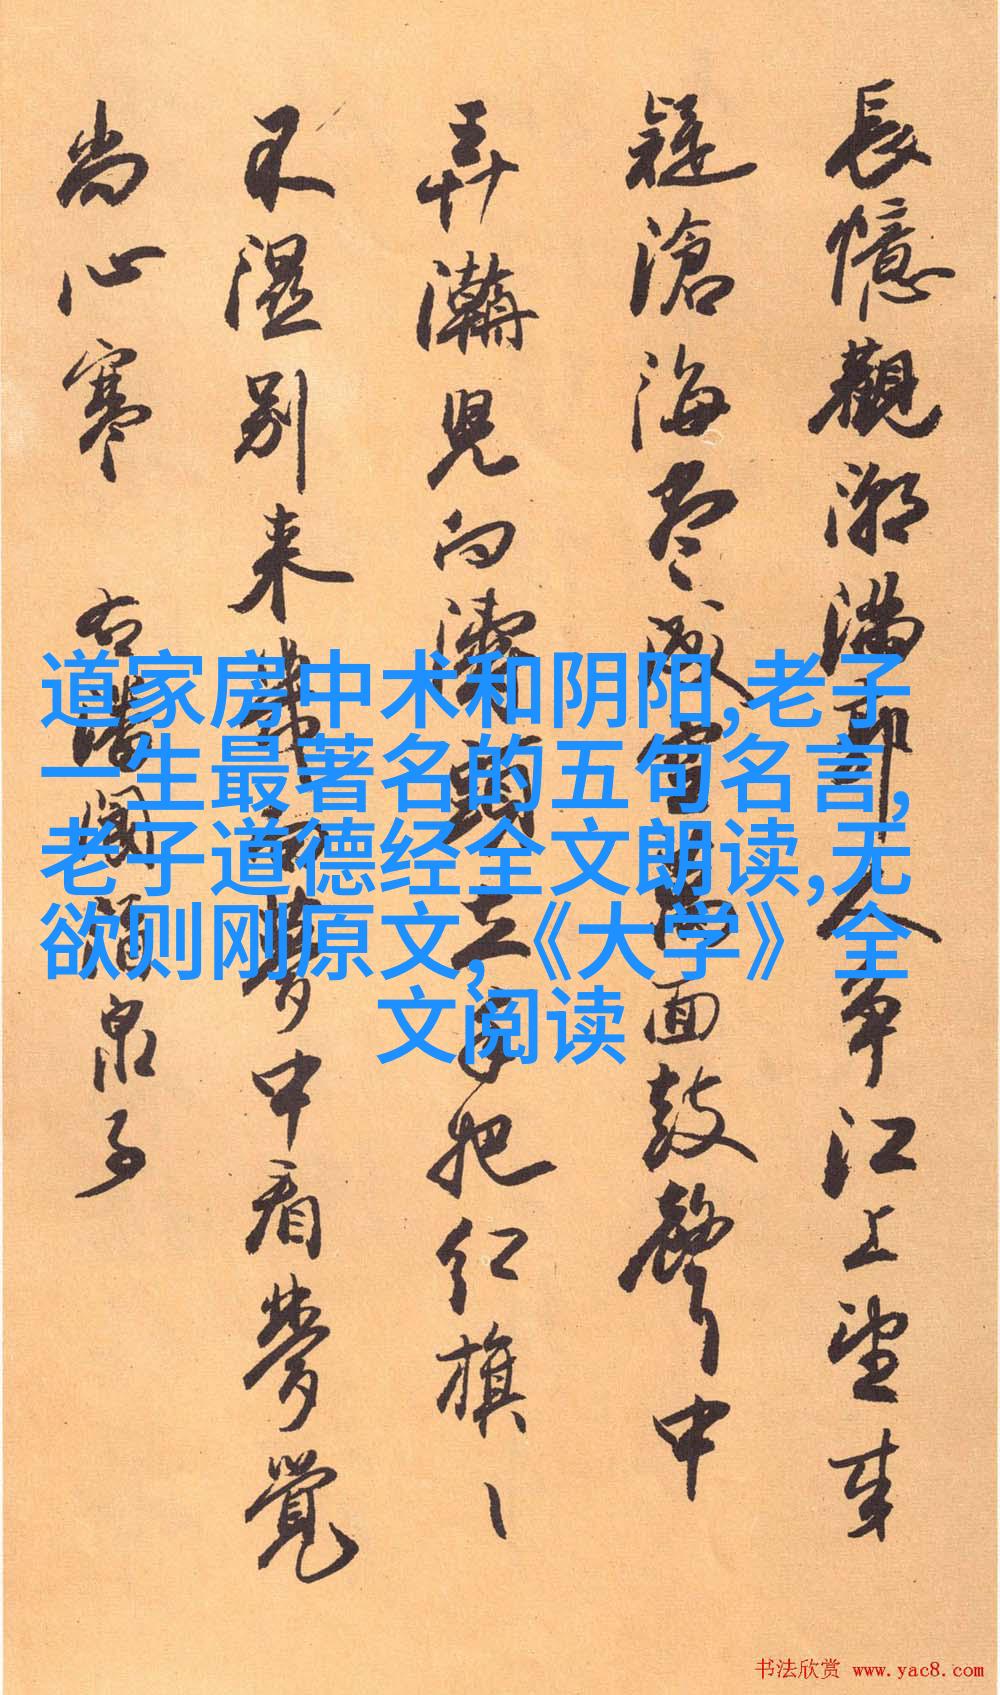 長憶觀潮滿郭人爭江上望来
疑滄海盡成空萬面鼓聲中
弄潮兒向濤頭立手把红旗ヽ
不溼别来幾向夢中看夢覺
尚心寒 右潘閬酒泉子
道家房中术和阴阳,老子
一生最著名的五句名言,
老子道德经全文朗读,无
欲则刚原文,《大学》全
文阅读
书法欣赏 www.yac8.com